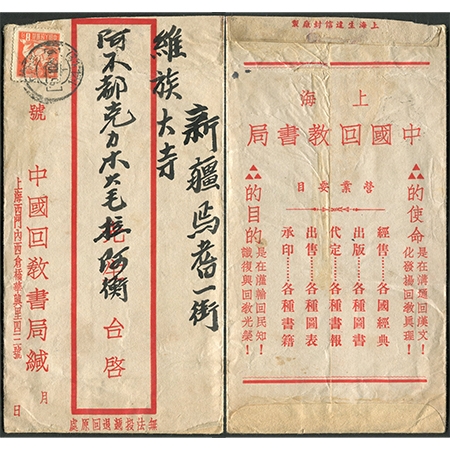 新疆焉耆一街
維族大寺
阿不都克力木大毛拉阿衡
台啓
號
中國回教書局緘
上海西門內西倉橋華興里四二號
月
日
無法投遞退回原處
上海生達信封廠製
上海
中國回教書局
營業要目
的使命
是在溝通回漢文
化發揚回教真理!
經售……各國經典
出版……各種圖書
代定……各種書報
出售……各種圖表
承印……各種書籍
的目的
是在灌輸回民知
識復興回教光榮!